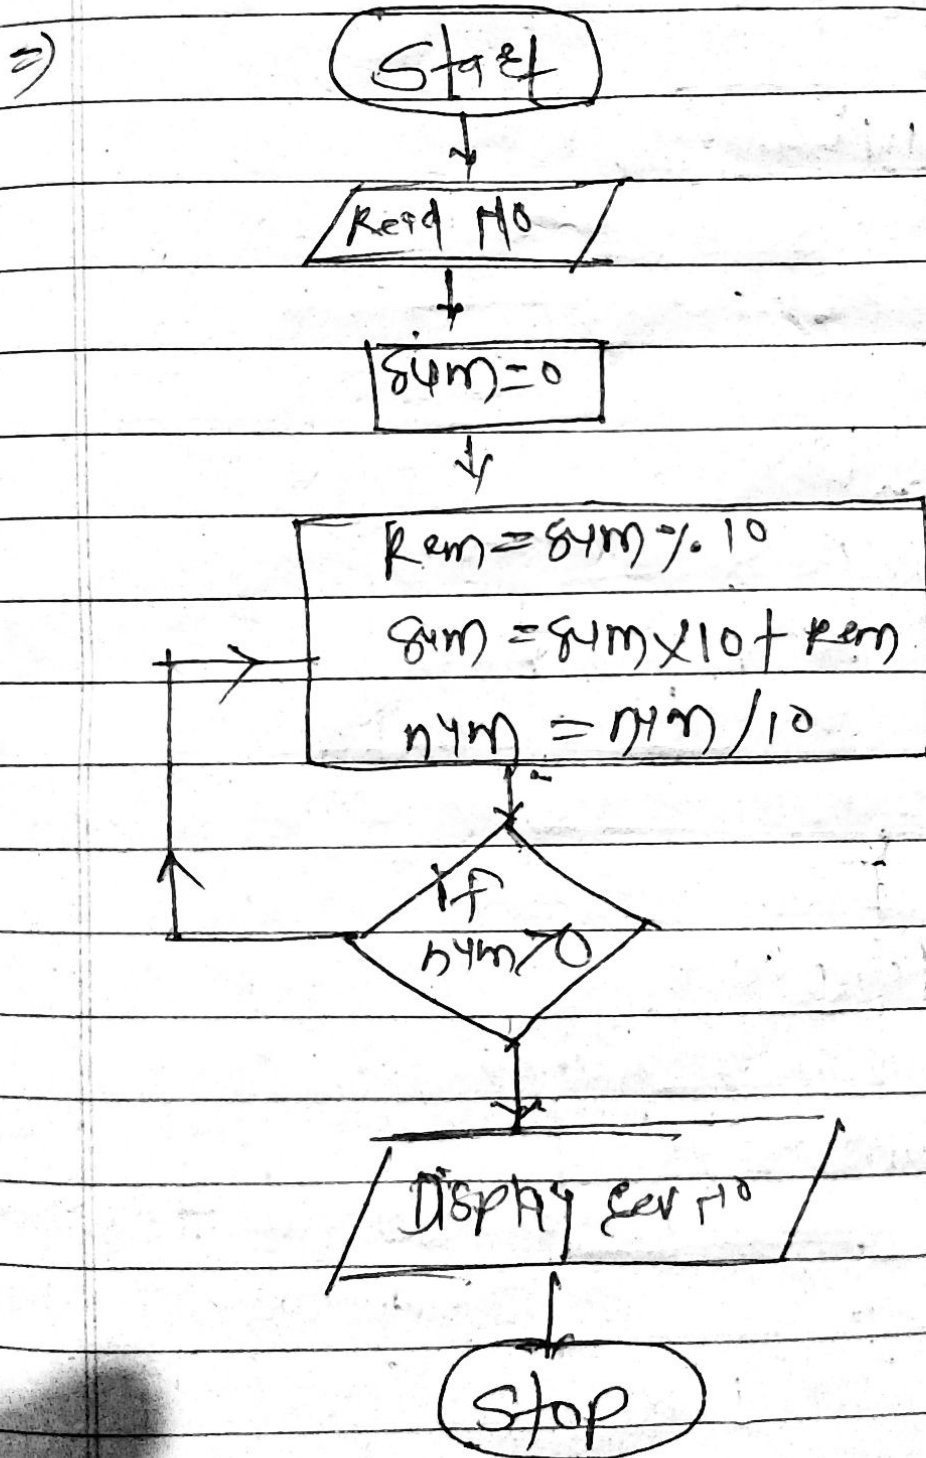 =)
Start
Read No
Sum=0
Rem = sum % 10
sum = sum x 10 + Rem
num = num / 10
if
num > 0
Display rev No
Stop